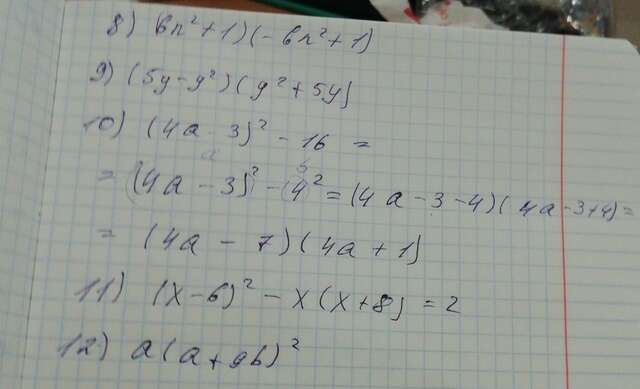 8) (6n²+1)(-6n²+1)
9) (5y-y²)(y²+5y)
10) (4a-3)²-16=
a b
=(4a-3)²-(4)²=(4a-3-4)(4a-3+4)=
=(4a-7)(4a+1)
11) (x-6)²-x(x+8)=2
12) a(a+9b)²